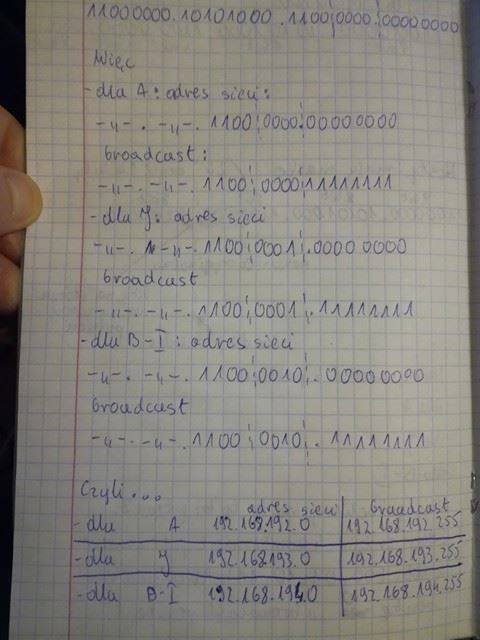 11000000.10101000.1100¦0000¦.00000000
Więc
- dla A: adres sieci:
-"-. -"-. 1100¦0000¦.00000000
broadcast:
-"-. -"-. 1100¦0000¦.11111111
- dla J: adres sieci
-"-. -"-. 1100¦0001¦.00000000
broadcast
-"-. -"-. 1100¦0001¦.11111111
- dla B-I: adres sieci
-"-. -"-. 1100¦0010¦.00000000
broadcast
-"-. -"-. 1100¦0010¦.11111111
Czyli...
adres sieci broadcast
- dla A 192.168.192.0 192.168.192.255
- dla J 192.168.193.0 192.168.193.255
- dla B-I 192.168.194.0 192.168.194.255